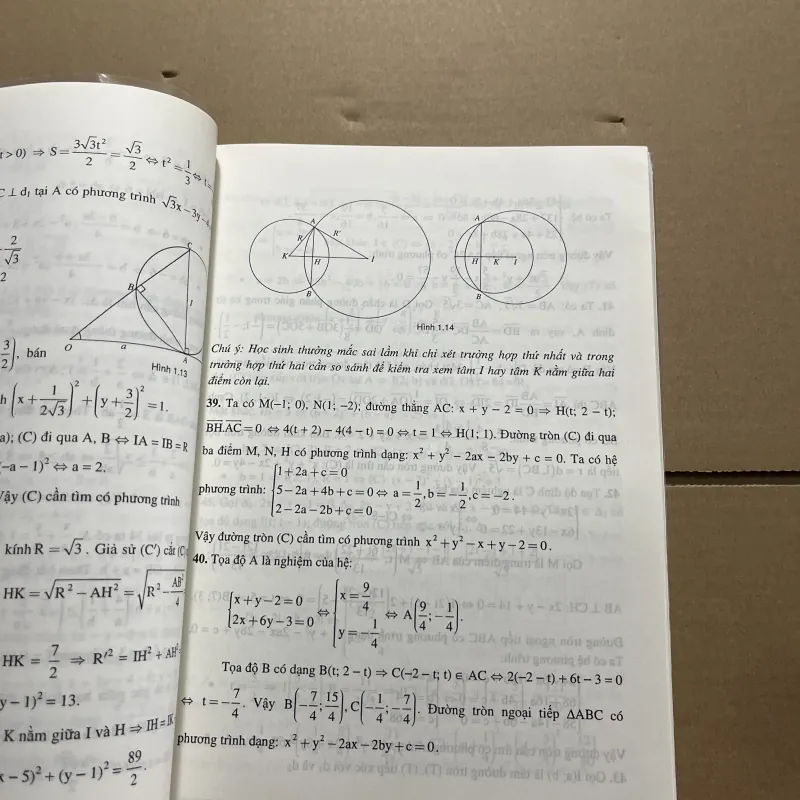 t > 0) ⇒ S = 3√3t²/2 = √3/2 ⇔ t² = 1/3 ⇔ t =
C ⊥ d₁ tại A có phương trình √3x − 3y − 4
2/√3
2
C
B
I
O
a
A
Hình 1.13
3/2), bán
h (x + 1/(2√3))² + (y + 3/2)² = 1.
a); (C) đi qua A, B ⇔ IA = IB = R
(−a − 1)² ⇔ a = 2.
Vậy (C) cần tìm có phương trình
kính R = √3. Giả sử (C') cắt (C
HK = √(R² − AH²) = √(R² − AB²/4
HK = 7/2 ⇒ R'² = IH² + AH²
y − 1)² = 13.
K nằm giữa I và H ⇒ IH = IK
x − 5)² + (y − 1)² = 89/2.
A
R
R'
K
H
I
B
A
H
K
I
B
Hình 1.14
Chú ý: Học sinh thường mắc sai lầm khi chỉ xét trường hợp thứ nhất và trong
trường hợp thứ hai cần so sánh để kiểm tra xem tâm I hay tâm K nằm giữa hai
điểm còn lại.
39. Ta có M(−1; 0), N(1; −2); đường thẳng AC: x + y − 2 = 0 ⇒ H(t; 2 − t);
BH.AC = 0 ⇔ 4(t + 2) − 4(4 − t) = 0 ⇔ t = 1 ⇔ H(1; 1). Đường tròn (C) đi qua
ba điểm M, N, H có phương trình dạng: x² + y² − 2ax − 2by + c = 0. Ta có hệ
phương trình: {1 + 2a + c = 0
5 − 2a + 4b + c = 0 ⇔ a = 1/2, b = −1/2, c = −2.
2 − 2a − 2b + c = 0
Vậy đường tròn (C) cần tìm có phương trình x² + y² − x + y − 2 = 0.
40. Tọa độ A là nghiệm của hệ:
{x + y − 2 = 0
2x + 6y − 3 = 0 ⇔ {x = 9/4
y = −1/4 ⇔ A(9/4; −1/4).
Tọa độ B có dạng B(t; 2 − t) ⇒ C(−2 − t; t) ∈ AC ⇔ 2(−2 − t) + 6t − 3 = 0
⇔ t = −7/4. Vậy B(−7/4; 15/4), C(−1/4; −7/4). Đường tròn ngoại tiếp ΔABC có
phương trình dạng: x² + y² − 2ax − 2by + c = 0.